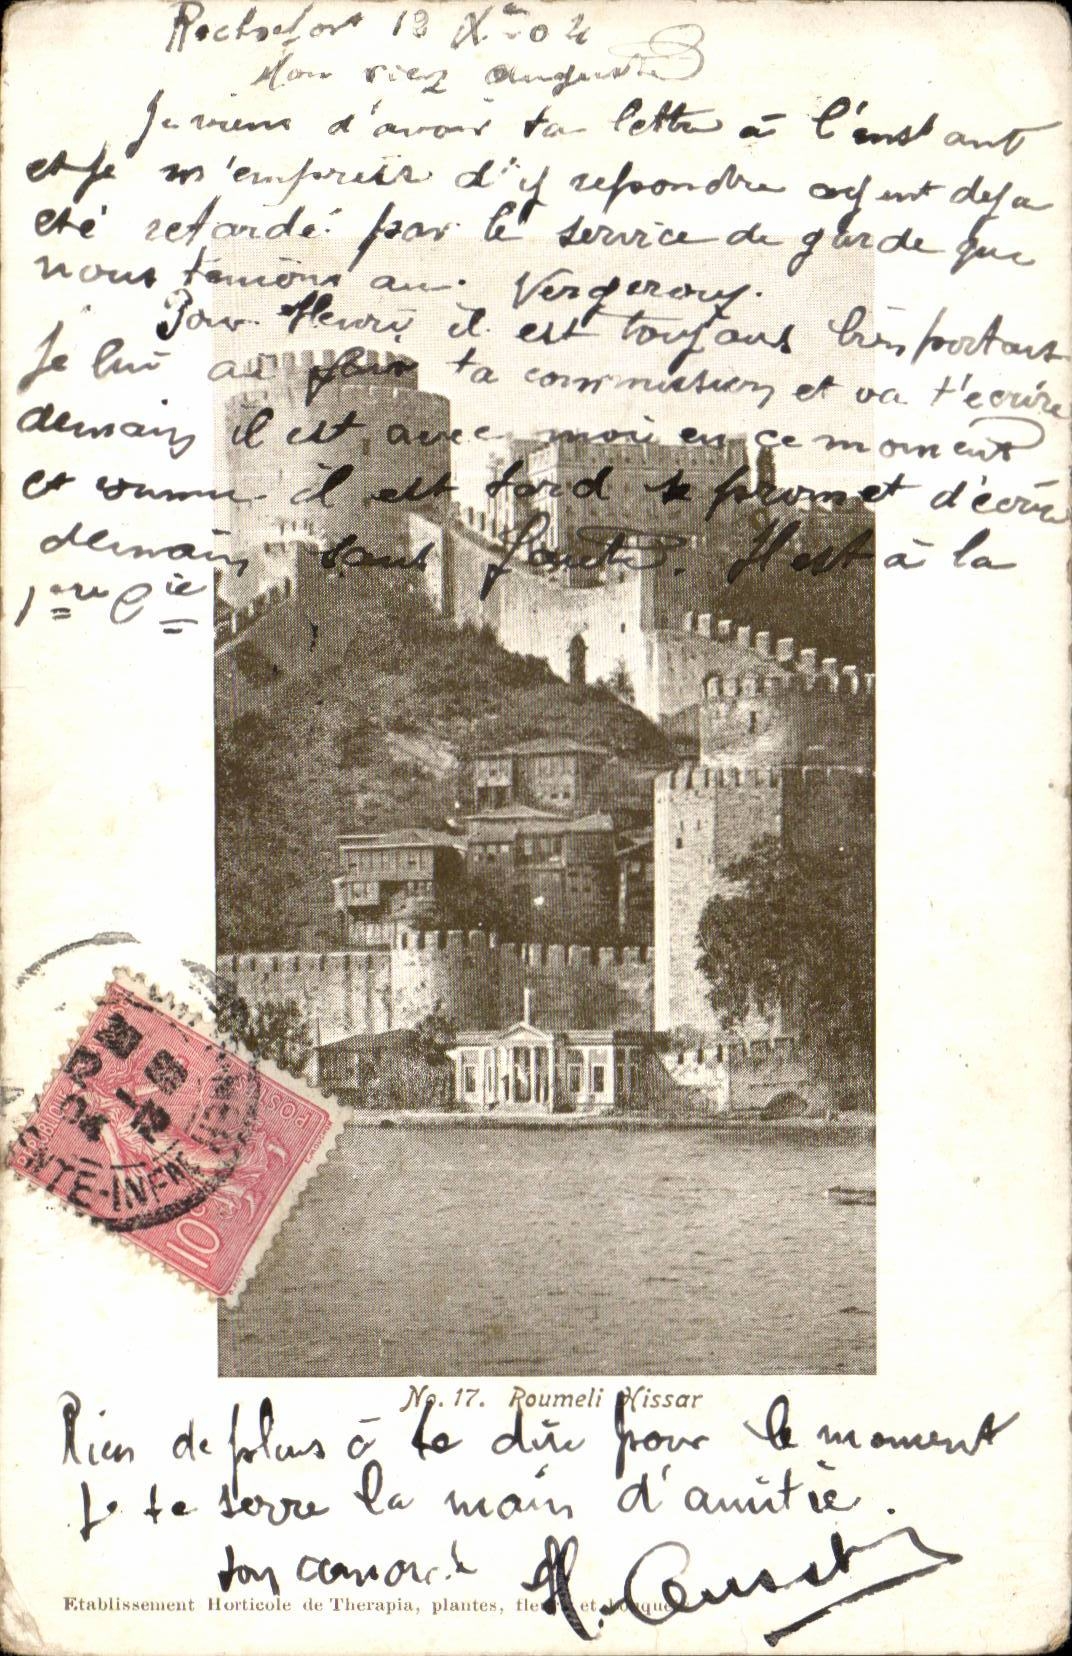 Rochefort 12 Xbre 04
Mon vieux Auguste
Je viens d'avoir ta lettre à l'instant
et je m'empresse d'y repondre ayant deja
été retardé par le service de garde que
nous tenions au Vergeroux.
Pour Henri il est toujours bien portant
Je lui ai fait ta commission et va t'écrire
demain il est avec moi en ce moment
et comme il est tard te promet d'écrire
demain sans faute. Il est à la
1ere Cie
POSTES
10c
12 -12 04
NTE-INFRE
No. 17. Roumeli Hissar
Rien de plus à te dire pour le moment
Je te serre la main d'amitié.
ton camarade
Etablissement Horticole de Therapia, plantes, fleurs et bouque